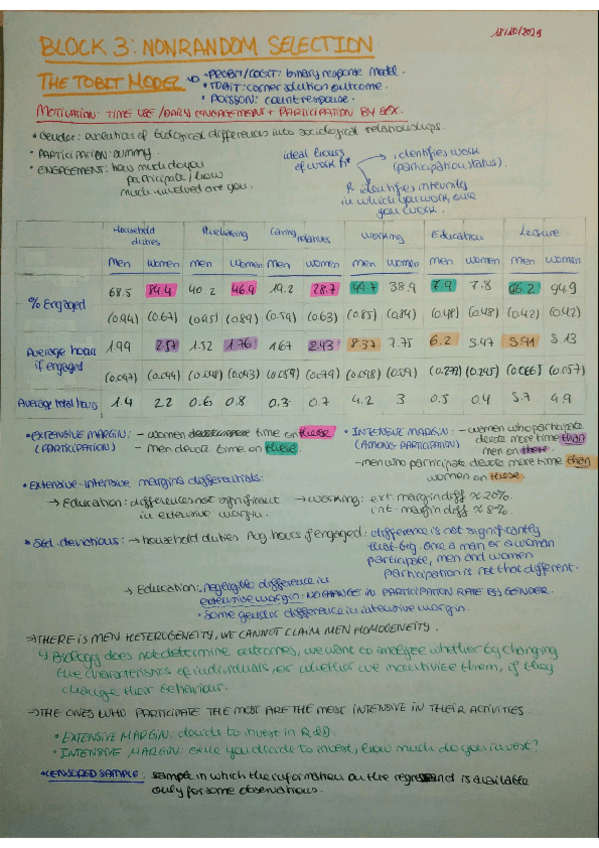 18/10/2023
BLOCK 3: NONRANDOM SELECTION
THE TOBIT MODEL
• PROBIT/LOGIT: binary response model.
• TOBIT: corner solution outcome
• POISSON: count response.
MOTIVATION: TIME USE / DAILY ENGAGEMENT + PARTICIPATION BY SEX.
• Gender: evolution of biological differences into sociological relationships.
• PARTICIPATION: dummy.
• ENGAGEMENT: how much do you participate / how much involved are you.
ideal hours of work h*
identifies work (participation status).
identifies intensity in which you work, once you work.
Household duties Purchasing Caring relatives Working Education Leisure
Men Women Men Women Men Women Men Women Men Women Men Women
% Engaged 68.5 84.4 40.2 46.9 19.2 28.7 49.7 38.9 7.9 7.8 66.2 94.9
(0.94) (0.67) (0.95) (0.89) (0.59) (0.63) (0.85) (0.84) (0.48) (0.48) (0.42) (0.42)
Average hours if engaged 1.99 2.57 1.52 1.76 1.67 2.43 8.37 7.75 6.2 5.47 5.91 5.13
(0.047) (0.044) (0.048) (0.043) (0.059) (0.079) (0.098) (0.09) (0.279) (0.245) (0.066) (0.057)
Average total hours 1.4 2.2 0.6 0.8 0.3 0.7 4.2 3 0.5 0.4 5.7 4.9
• EXTENSIVE MARGIN: - women devote time on these
(PARTICIPATION) - men devote time on these.
• INTENSIVE MARGIN: - women who participate
(AMONG PARTICIPATION) devote more time than
men on these.
- men who participate devote more time than
women on these.
• Extensive-intensive margins differentials:
→ Education: differences not significant in extensive margin.
→ Working: ext. margin diff ≈ 20%.
int. margin diff ≈ 8%.
• Std. deviations: → household duties Avg hours if engaged: difference is not significantly
that big. Once a man or a woman
participate, men and women
participation is not that different.
→ Education: negligible difference in
extensive margin: NO CHANGE IN PARTICIPATION RATE BY GENDER.
• Some gender difference in intensive margin.
⇒ THERE IS MEN HETEROGENEITY, WE CANNOT CLAIM MEN HOMOGENEITY.
↳ Biology does not determine outcomes, we want to analyse whether by changing
the characteristics of individuals, or whether we incentivise them, if they
change their behaviour.
⇒ THE ONES WHO PARTICIPATE THE MOST ARE THE MOST INTENSIVE IN THEIR ACTIVITIES.
• EXTENSIVE MARGIN: decide to invest in R&D.
• INTENSIVE MARGIN: once you decide to invest, how much do you invest?
• CENSORED SAMPLE: sample in which the information on the regressand is available
only for some observations.